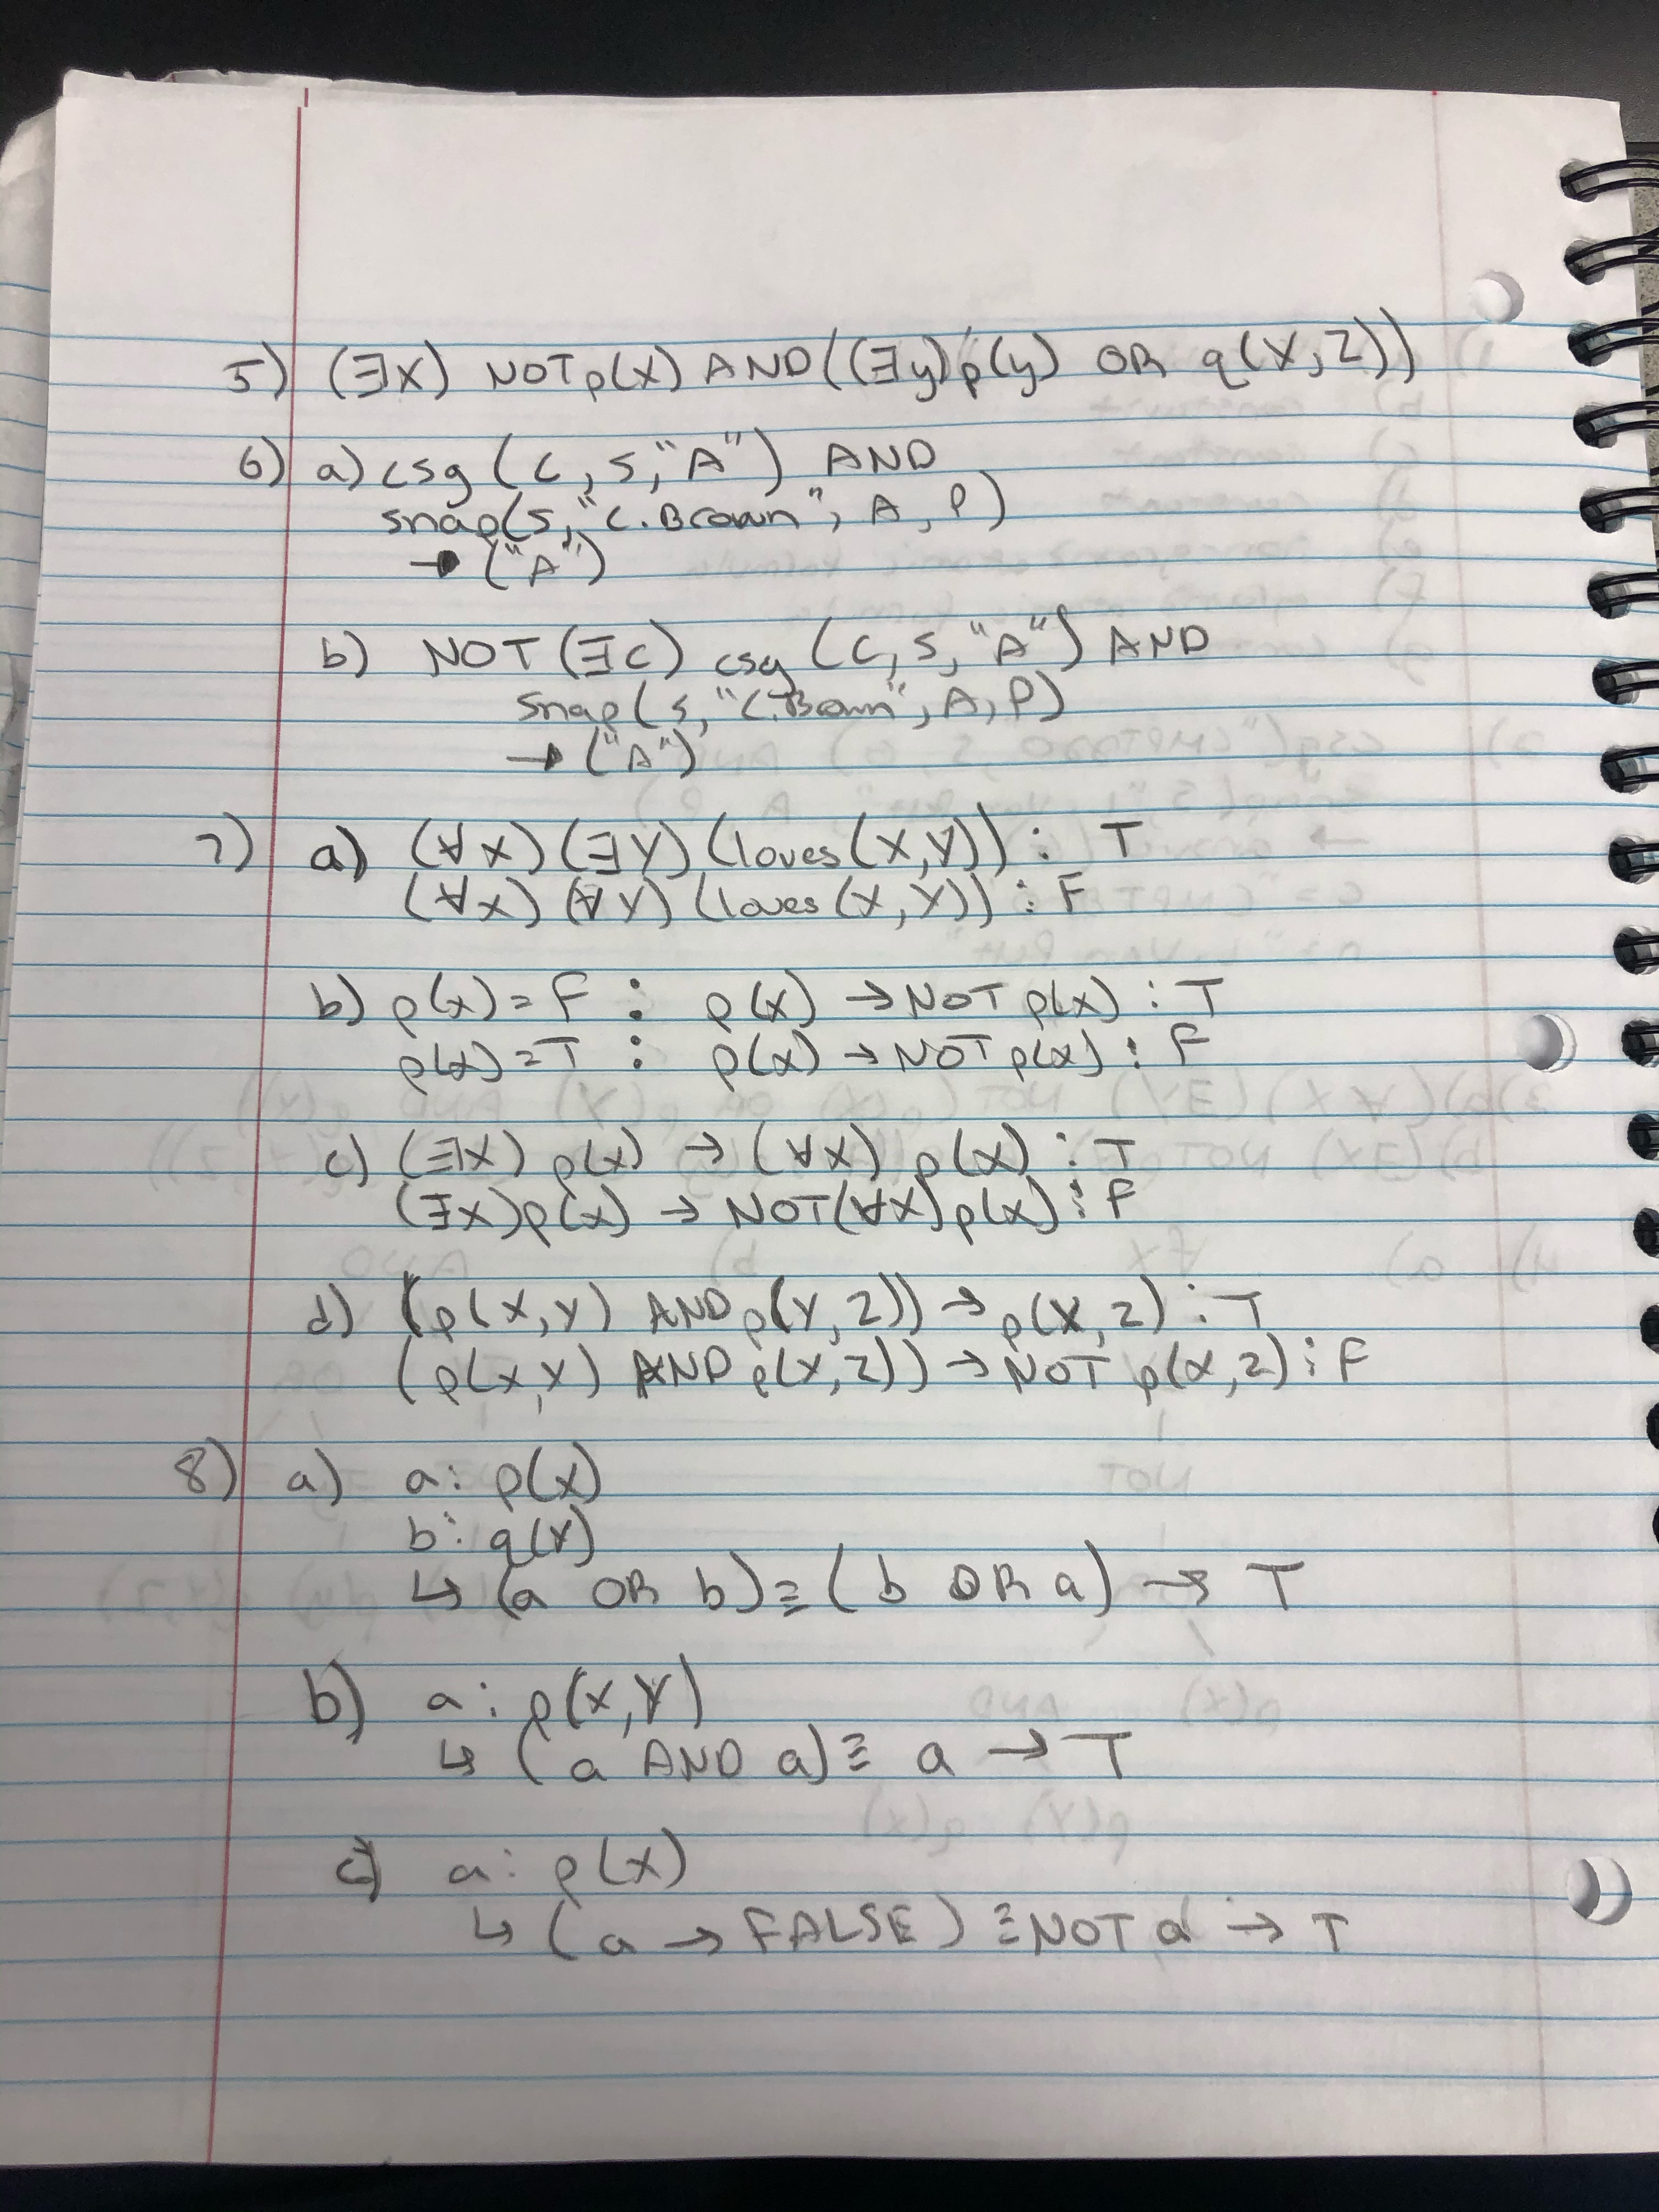 5) (∃X) NOT p(X) AND ((∃y)p(y) OR q(X,Z))
6) a) csg (C, S, "A") AND
snap(S, "C.Brown", A, P)
→ ("A")
b) NOT (∃C) csg (C, S, "A") AND
snap(S, "C.Brown", A, P)
→ ("A")
7) a) (∀X) (∃Y) (loves(X,Y)) : T
(∀X) (∀Y) (loves(X,Y)) : F
b) p(x) = F : p(x) → NOT p(x) : T
p(x) = T : p(x) → NOT p(x) : F
c) (∃X) p(x) → (∀X) p(x) : T
(∃X) p(x) → NOT (∀X) p(x) : F
d) (p(X,Y) AND p(Y,Z)) → p(X,Z) : T
(p(X,Y) AND p(Y,Z)) → NOT p(X,Z) : F
8) a) a: p(X)
b: q(X)
↳ (a OR b) ≡ (b OR a) → T
b) a: p(X,Y)
↳ (a AND a) ≡ a → T
c) a: p(X)
↳ (a → FALSE) ≡ NOT a → T